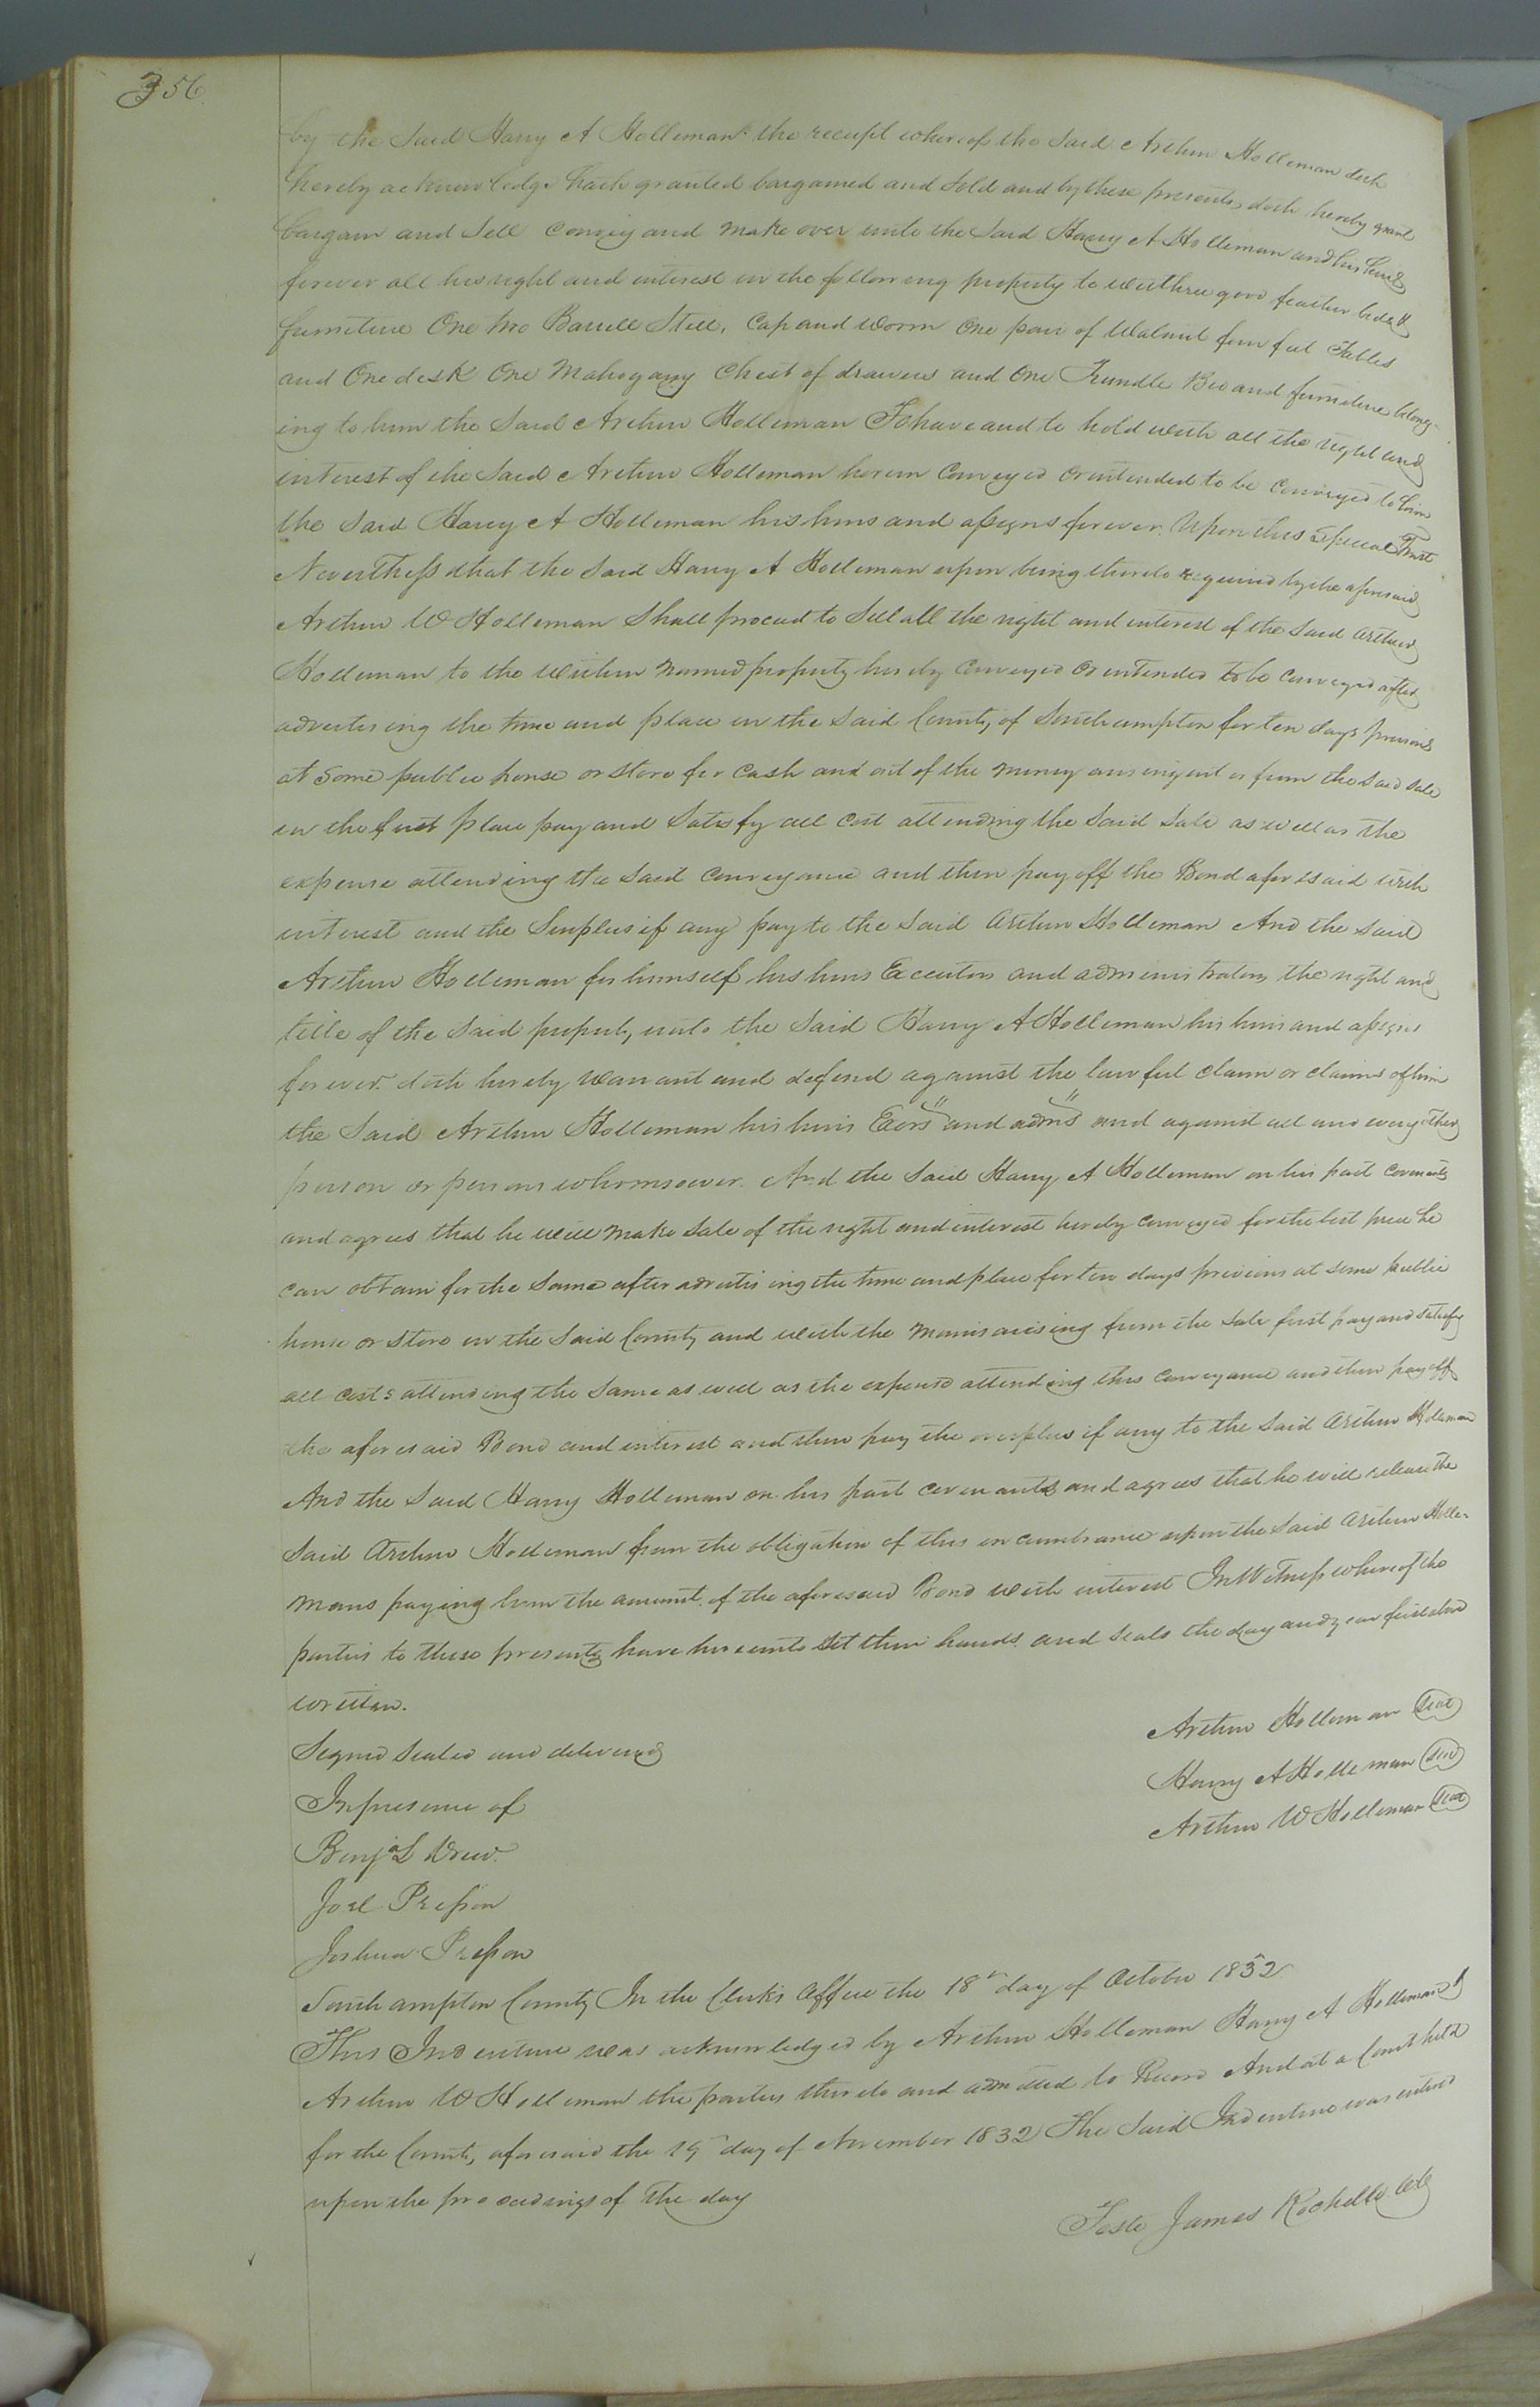 356
by the Said Harry A Holleman the receipt whereof the Said Arthur Holleman doth
hereby acknowledge hath granted bargained and Sold and by these presents, doth hereby grant
bargain and Sell Convey and make over unto the Said Harry A Holleman and his heirs
forever all his right and interest in the following property to wit three good feather beds &
furniture One two Barrell Still, Cap and Worm One pair of Walnut four feet Tables
and One desk One Mahogany Chest of drawers and One Trundle Bed and furniture belong-
ing to him the Said Arthur Holleman To have and to hold with all the right and
interest of the Said Arthur Holleman herein Conveyed or intended to be Conveyed to him
the Said Harry A Holleman his heirs and assigns forever. Upon this Special Trust
Nevertheless that the Said Harry A Holleman upon being thereto required by the aforesaid
Arthur W Holleman Shall proceed to Sell all the right and interest of the Said Arthur
Holleman to the within named property hereby Conveyed or intended to be Conveyed after
advertising the time and place in the Said County of Southampton for ten days previous
at Some public house or Store for Cash and out of the money arising out or from the Said Sale
in the first place pay and Satisfy all Cost attending the Said Sale as well as the
expense attending the Said Conveyance and then pay off the Bond aforesaid with
interest and the Surplus if any pay to the Said Arthur Holleman And the Said
Arthur Holleman for himself his heirs Executors and administrators, the right and
title of the Said property unto the Said Harry A Holleman his heirs and assigns
forever. doth hereby Warrant and defend against the lawful Claim or Claims of him
the Said Arthur Holleman his heirs Exors and adms and against all and every other
person or persons whomsoever. And the Said Harry A Holleman on his part Covenants
and agrees that he will make Sale of the right and interest hereby Conveyed for the best price he
can obtain for the Same after advertising the time and place for ten days previous at some public
house or Store in the Said County and with the monies arising from the Sale first pay and Satisfy
all Costs attending the Same as well as the expense attending this Conveyance and then pay off
the aforesaid Bond and interest and then pay the overplus if any to the Said Arthur Holleman
And the Said Harry Holleman on his part Covenants and agrees that he will release the
Said Arthur Holleman from the obligation of this incumbrance upon the Said Arthur Holle-
mans paying him the amount of the aforesaid Bond with interest In Witness whereof the
parties to these presents have hereunto Set their hands and Seals the day and year first above
written.
Signed Sealed and delivered
In presence of
Benja L Drew
Joel Presson
Joshua Presson
Arthur Holleman Seal
Harry A Holleman Seal
Arthur W Holleman Seal
Southampton County In the Clerks Office the 18th day of October 1832
This Indenture was acknowledged by Arthur Holleman Harry A Holleman &
Arthur W Holleman the parties thereto and admitted to Record And at a Court held
for the County aforesaid the 19 day of November 1832 The Said Indenture was entered
upon the proceedings of the day
Teste James Rochelle